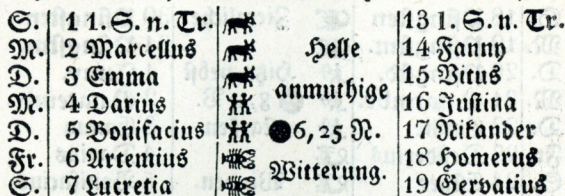 S. 1 1. S. n. Tr. 13 1. S. n. Tr.
M. 2 Marcellus Helle 14 Fanny
D. 3 Emma 15 Vitus
M. 4 Darius anmuthige 16 Justina
D. 5 Bonifacius ●6, 25 N. 17 Nikander
Fr. 6 Artemius 18 Homerus
S. 7 Lucretia Witterung. 19 Gervatius